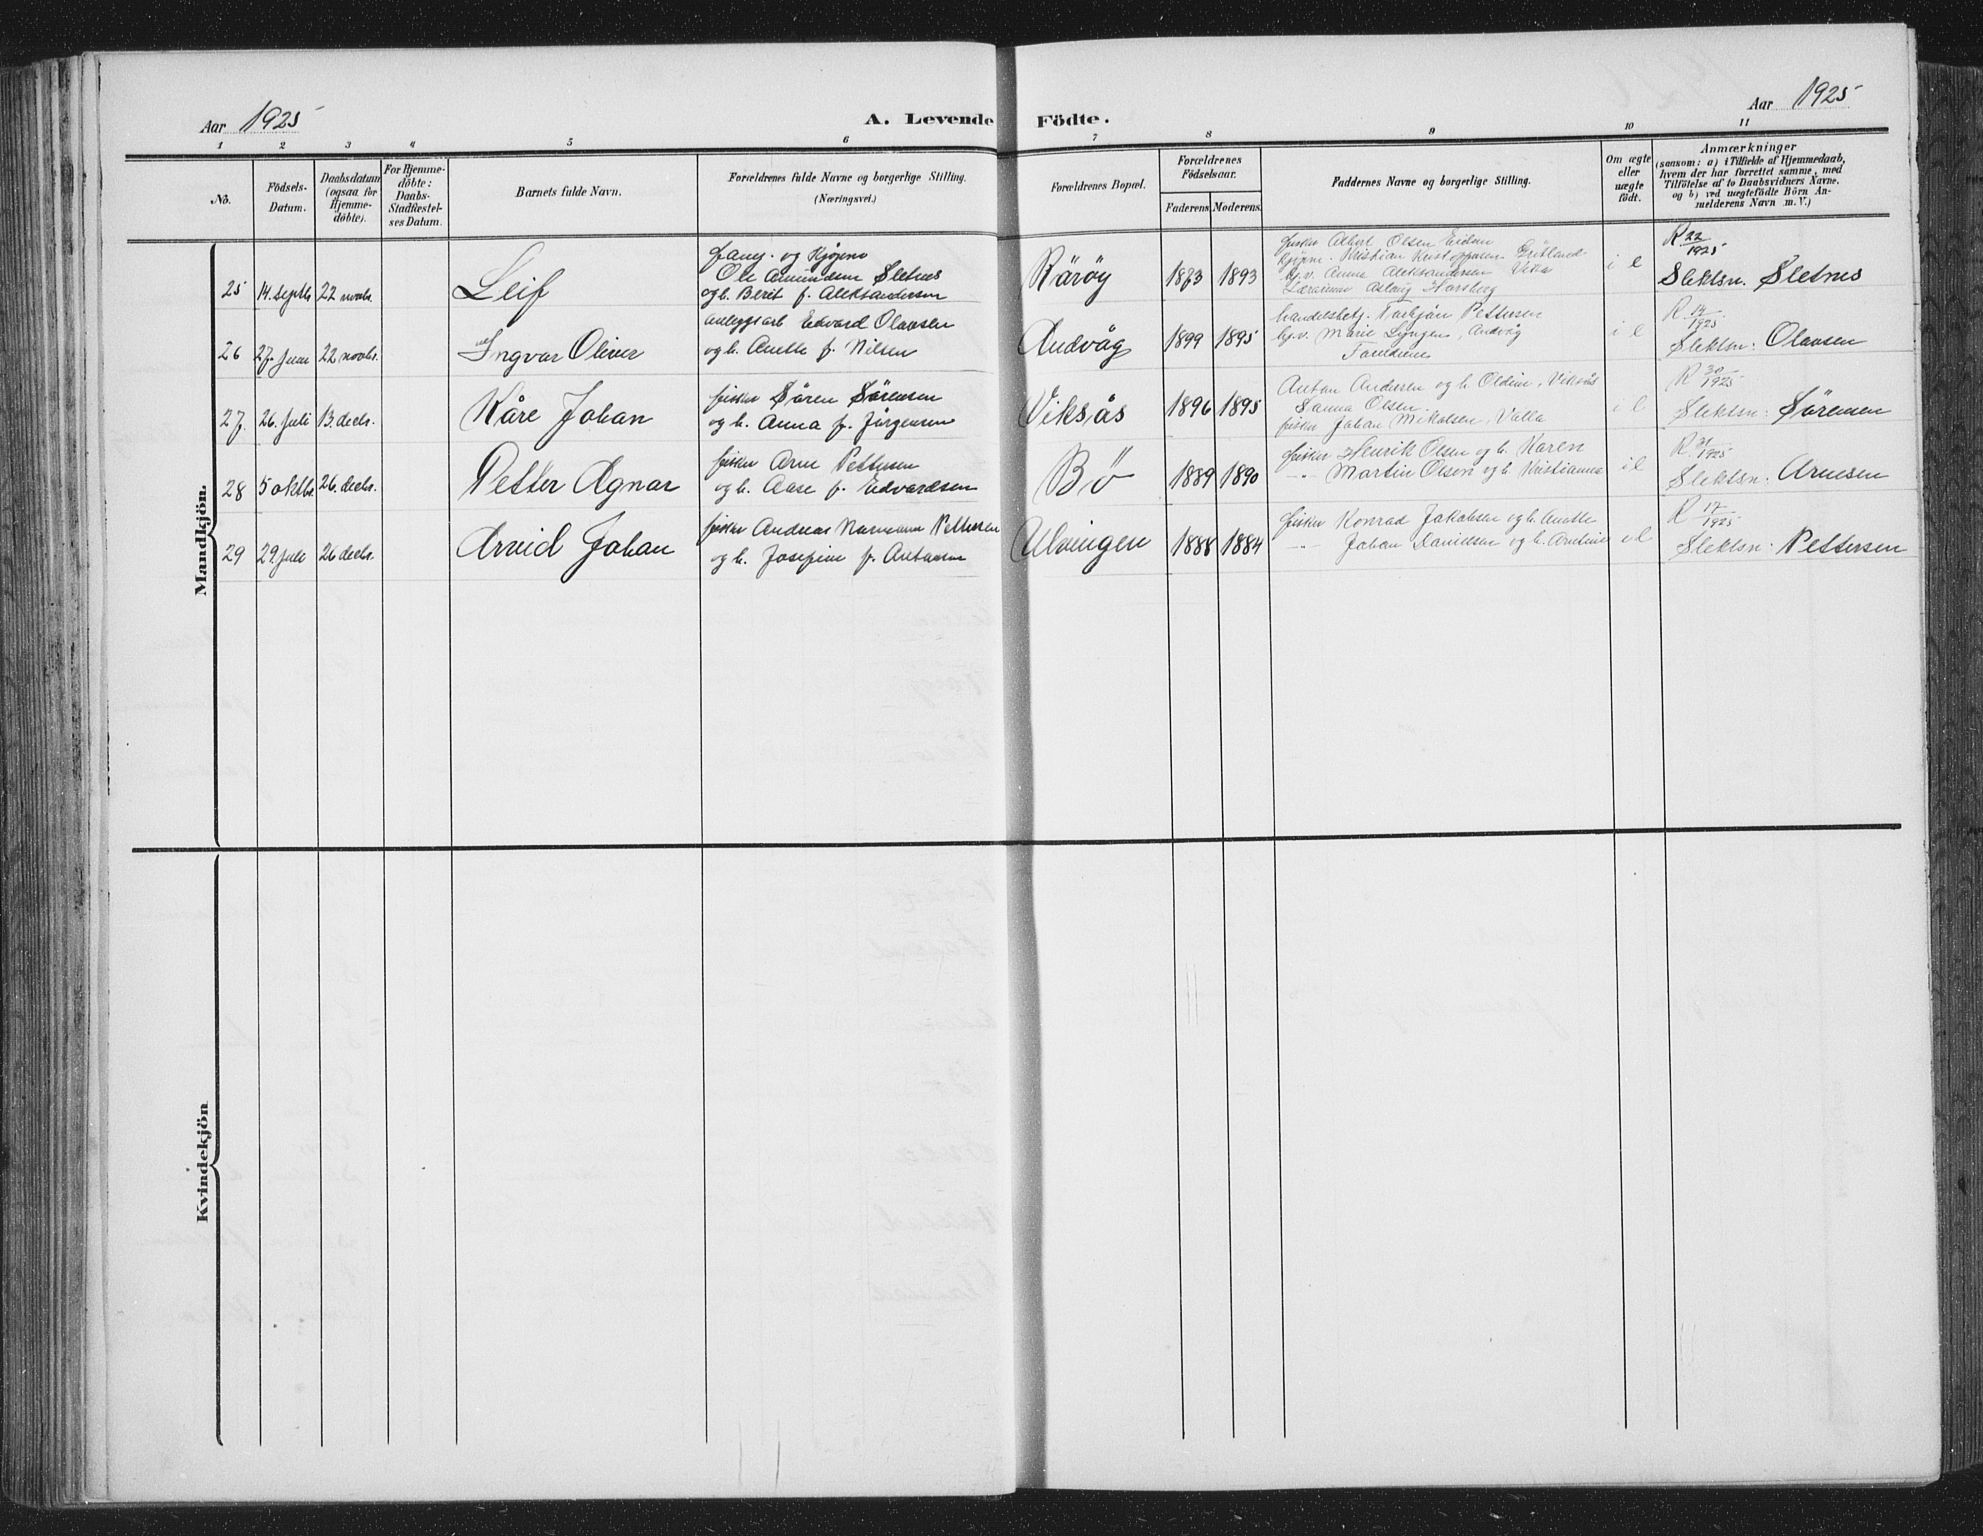 Aar 1925
A. Levende Födte.
Aar 1925
1 2 3 4 5 6 7 8 9 10 11
No.
Födsels-Datum.
Daabsdatum (ogsaa for Hjemmedöbte).
For Hjemmedöbte: Daabs-Stadfæstelses Datum.
Barnets fulde Navn.
Forældrenes fulde Navne og borgerlige Stilling.
(Næringsvei.)
Forældrenes Bopæl.
Forældrenes Födselsaar.
Faderens Moderens.
Faddernes Navne og borgerlige Stilling.
Om ægte eller uægte födt.
Anmærkninger
(saasom: a) i Tilfælde af Hjemmedaab,
hvem der har forrettet samme, med
Tilföielse af to Daabsvidners Navne,
og b) ved uægtefödte Börn An-
melderens Navn m. V.)
Mandkjön.
25 14 septb 22 novbr. Leif
og Kjøpm
Ole Amundsen Sletnes
og h. Berit f. Aleksandersen
Rårøy 1883 1893
fisker Albert Olsen Eidem
kjøpm. Kristian Kristoffersen Grøtland
Anna Aleksandersen Vika
Lærerinne Astrid Horsberg
i e
R 22/1925
Slektsn. Sletnes
26 27. juni 22 novbr. Ingvar Oliver
anleggsarb Edvard Olavsen
og h. Anette f. Nilsen
Andvåg 1899 1895
handelsbetj. Torbjørn Pettersen
Marie Lyngen, Andvåg
Foreldrene
i e
R 14/1925
Slektsn: Olavsen
27. 26. juli 13. decbr. Kåre Johan
fisker Søren Sørensen
og h. Anna f. Jørgensen
Viksås 1896 1895
Anton Andersen og h. Oldine, Viksås
Sanna Olsen.
fisker Johan Mikalsen, Valla
i e
R 30/1925
Slektsn: Sørensen
28 5 oktbr. 26. decbr. Petter Agnar
fisker Arne Pettersen
og h. Aase f. Edvardsen
Bö 1889 1890
fisker Henrik Olsen og h. Karen
-"- Martin Olsen og h. Kristianna
i e
R 31/1925
Slektsn: Arnesen
29 29 juli 26 decbr. Arvid Johan
fisker Andreas Normann Pettersen
og h. Josefine f. Antonsen
Ulvingen 1888 1884
fisker Konrad Jakobsen og h. Anette
-"- Johan Danielsen og h. Arntine
i e
R 17/1925
Slektsn: Pettersen
Kvindekjön